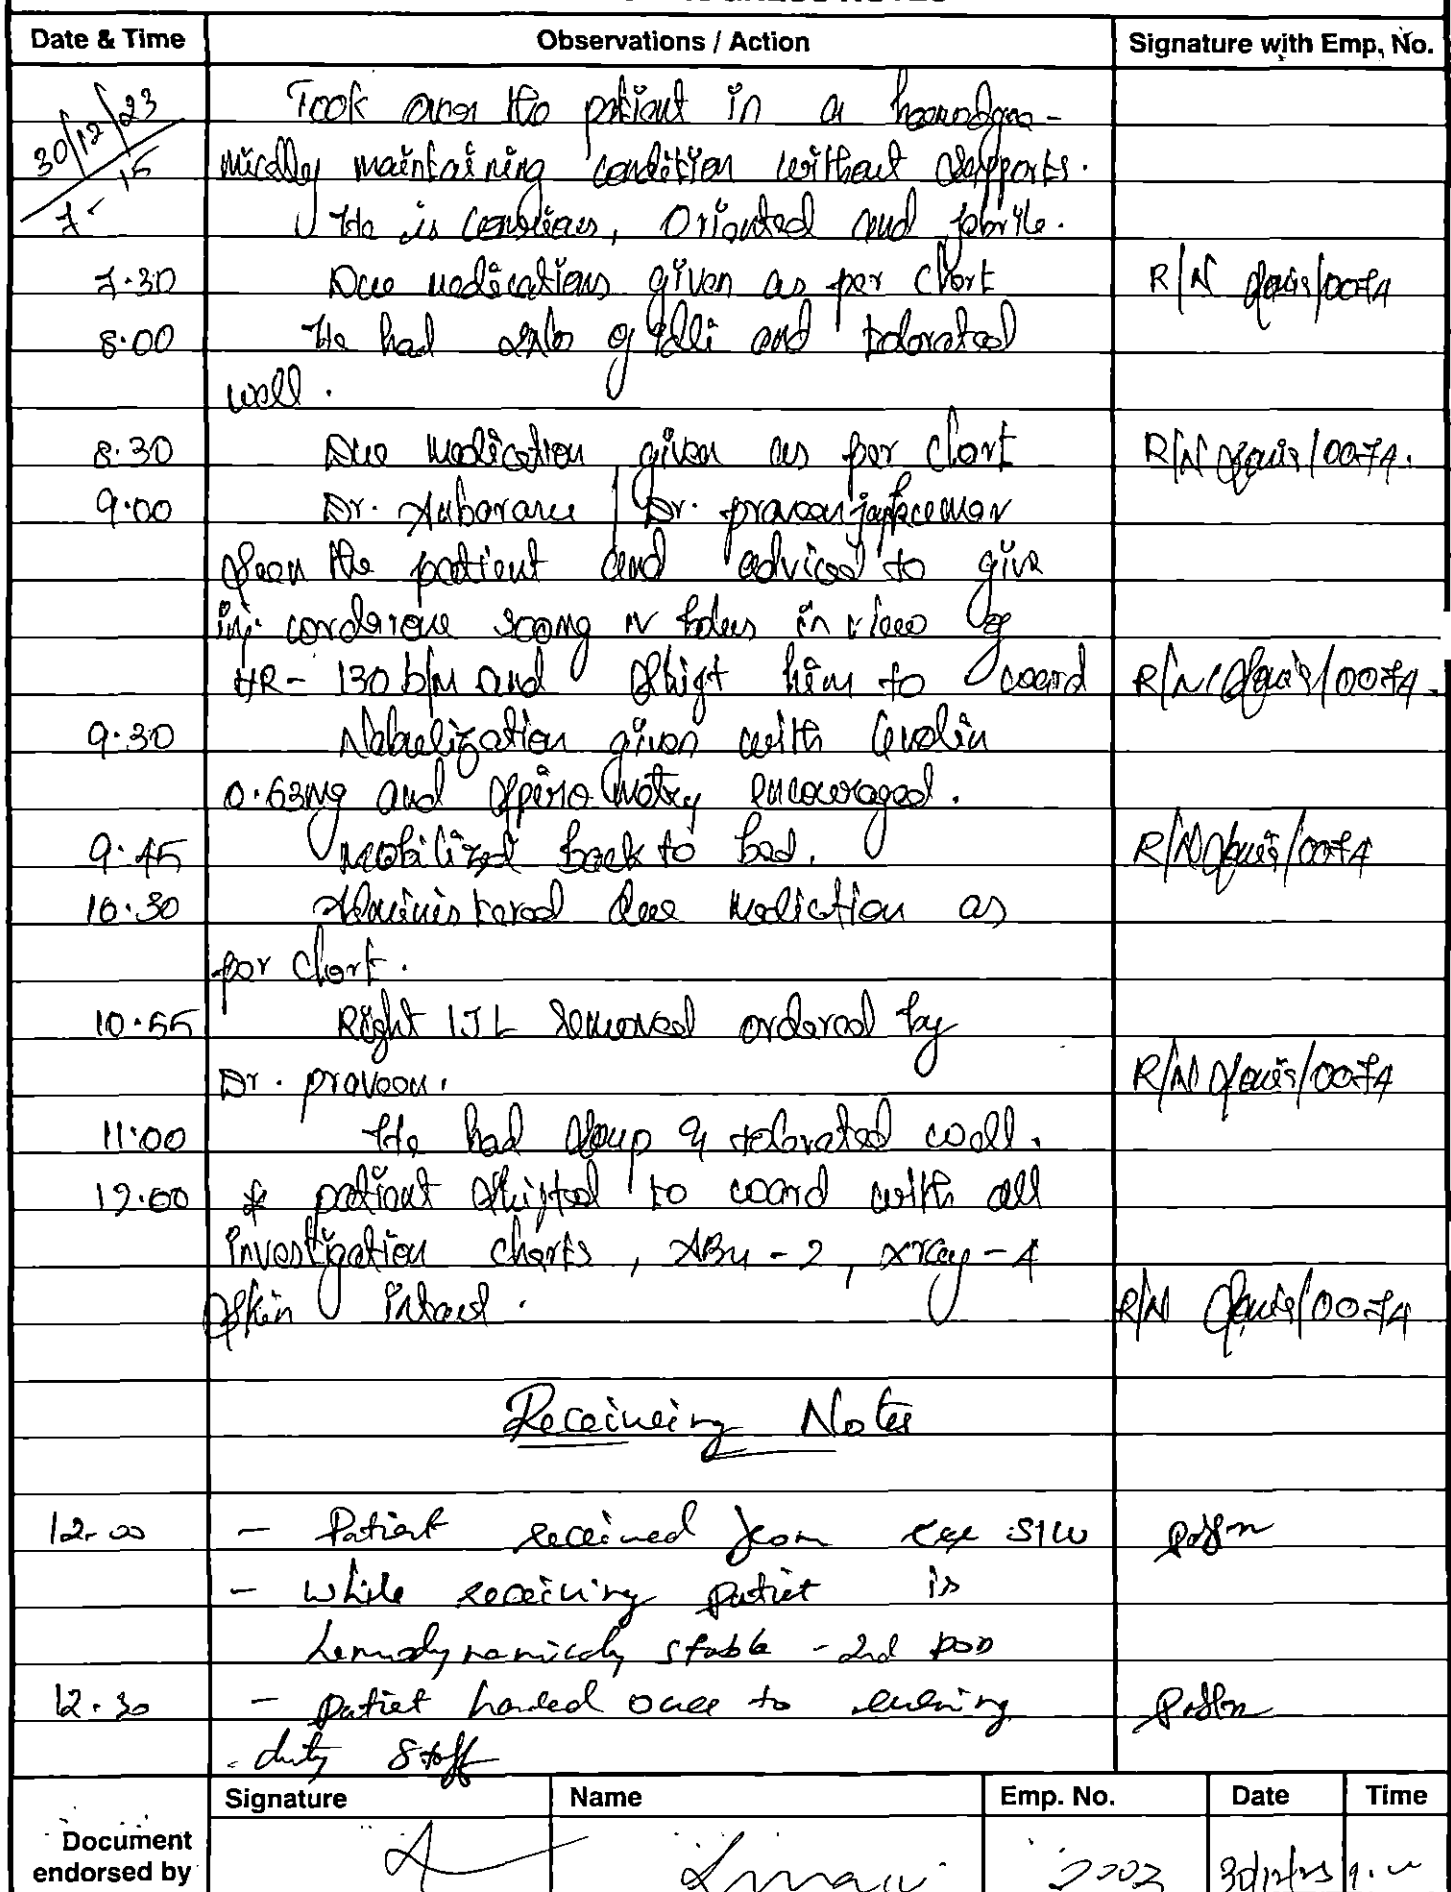 Date & Time Observations / Action Signature with Emp, No.
30/12/23 Took over the patient in a heamodyna-
7-15 mically maintaining condition without supports.
He is conscious, Oriented and febrile.
7.30 Due medications given as per Chart R/N /0074
8:00 He had of Idli and tolerated
well.
8.30 Due medication given as per Chart R/N /0074.
9.00 Dr. / Dr.
Seen the patient and adviced to give
inj. cordarone mg IV bolus in view of
HR- 130 b/m and Shift him to ward R/N /0074.
9.30 Nebuelization given with Levolin
0.63mg and Spirometry encouraged.
9.45 Mobilized back to bed. R/N /0074
10.30 Administered due medication as
per Chart.
10.55 Right IJL removed ordered by
Dr. praveen. R/N /0074
11:00 He had Soup & tolerated well.
12.00 * patient Shifted to ward with all
investigation charts, ABG - 2, xray - 4
Skin intact. R/N /0074
Receiveing Notes
12.00 - Patient received from SIW
- while receiving patient is
hemodynamicaly stable - 2nd POD
12.30 - patient handed over to evening
duty Staff
Signature Name Emp. No. Date Time
Document
endorsed by 30/12/23